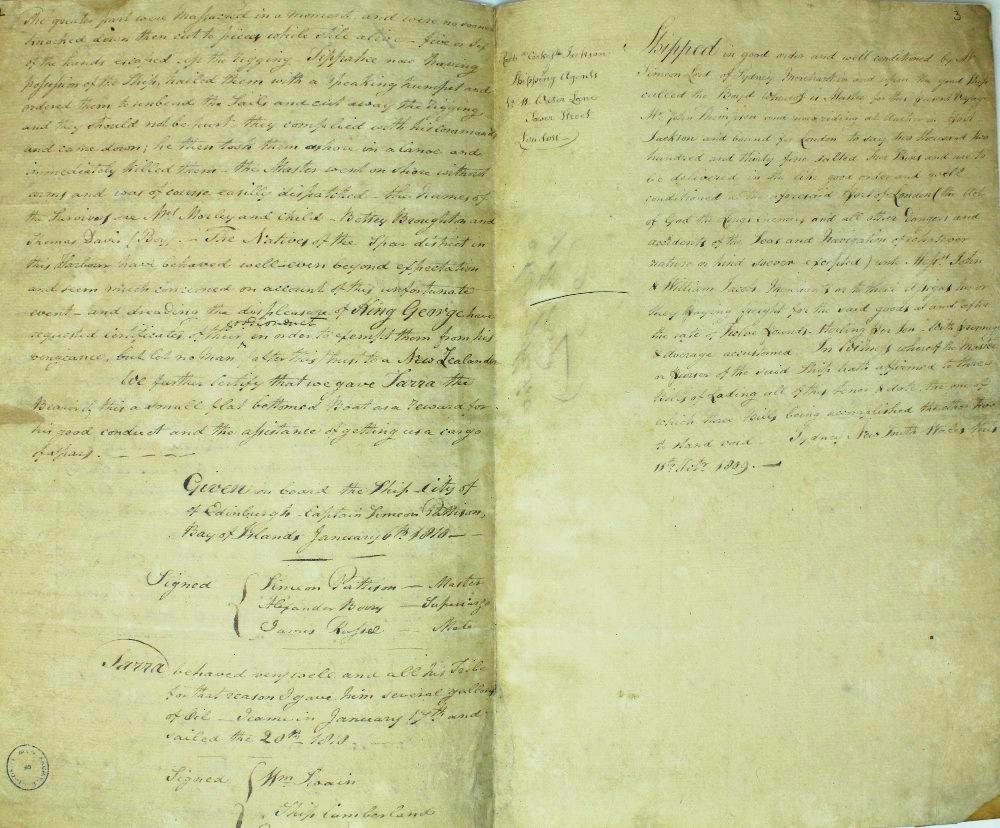 The greater part were Massacred in a moment and were no sooner
knocked down then cut to pieces while still alive – five or six
of the hands escaped up the rigging Tippahee now having
possession of the Ship, hailed them with a speaking trumpet and
ordered them to unbend the Sails and cut away the rigging
and they should not be hurt – they complied with his commands
and came down; he then took them ashore in a Canoe and
immediately killed them – the Master went on Shore without
arms and was of course easilly dispatched – the names of
the Survivors are Mrs. Morley and Child – Betsey Broughton and
Thomas Davis (Boy) – The Natives of the Spar district in
this Harbour have behaved well even beyond expectation
and seem much concerned on account of this unfortunate
event – and dreading the displeasure of King George have
requested certificates of their good Conduct in order to exempt them from his
vengeance, but let no man after this trust to a New Zealander
We further Certify that we gave Tarra the
Bearer of this a small flat bottomed Boat as a reward for
his good conduct and the assistance of getting us a cargo
of spars.
Given on board the Ship City of
of Edinburgh – Captain Simeon Pattison,
Bay of Islands January 6th 1810 –
Signed Simeon Pattison – Master
Alexander Berry – Supercargo
James Russel – Mate
Tarra behaved very well and all his Tribe
for that reason I gave him several gallons
of Oil – I came in January 17th and
sailed the 20th 1810.
Signed Wm Swain
Ship Cumberland
3
Jackson
Shipping Agents
No 11 Water Lane
Tower Street
London –
Shipped in good order and well conditioned by Mr
Simeon Lord of Sydney Merchant in and upon the good Ship
called the Boyd whereof is Master for this present Voyage
Mr John Thompson and now riding at Anchor in Port
Jackson and bound for London to say two thousand two
hundred and thirty five salted Seal Skins and are to
be delivered in the like good order and well
conditioned at the aforesaid Port of London (the Act
of God the Kings Enemies and all other Dangers and
accidents of the Seas and Navigation of whatever
nature or kind soever excepted) unto Messrs John
& William Jacob Merchants or to their Assigns he or
they paying freight for the said goods at and after
the rate of Twelve Pounds Sterling per Ton with Primage
& Average accustomed. In Witness whereof the Master
or Purser of the said Ship hath affirmed to three
Bills of Lading all of this Tenor & date the one of
which three Bills being accomplished the other two
to stand void – Sydney New South Wales this
1809. –